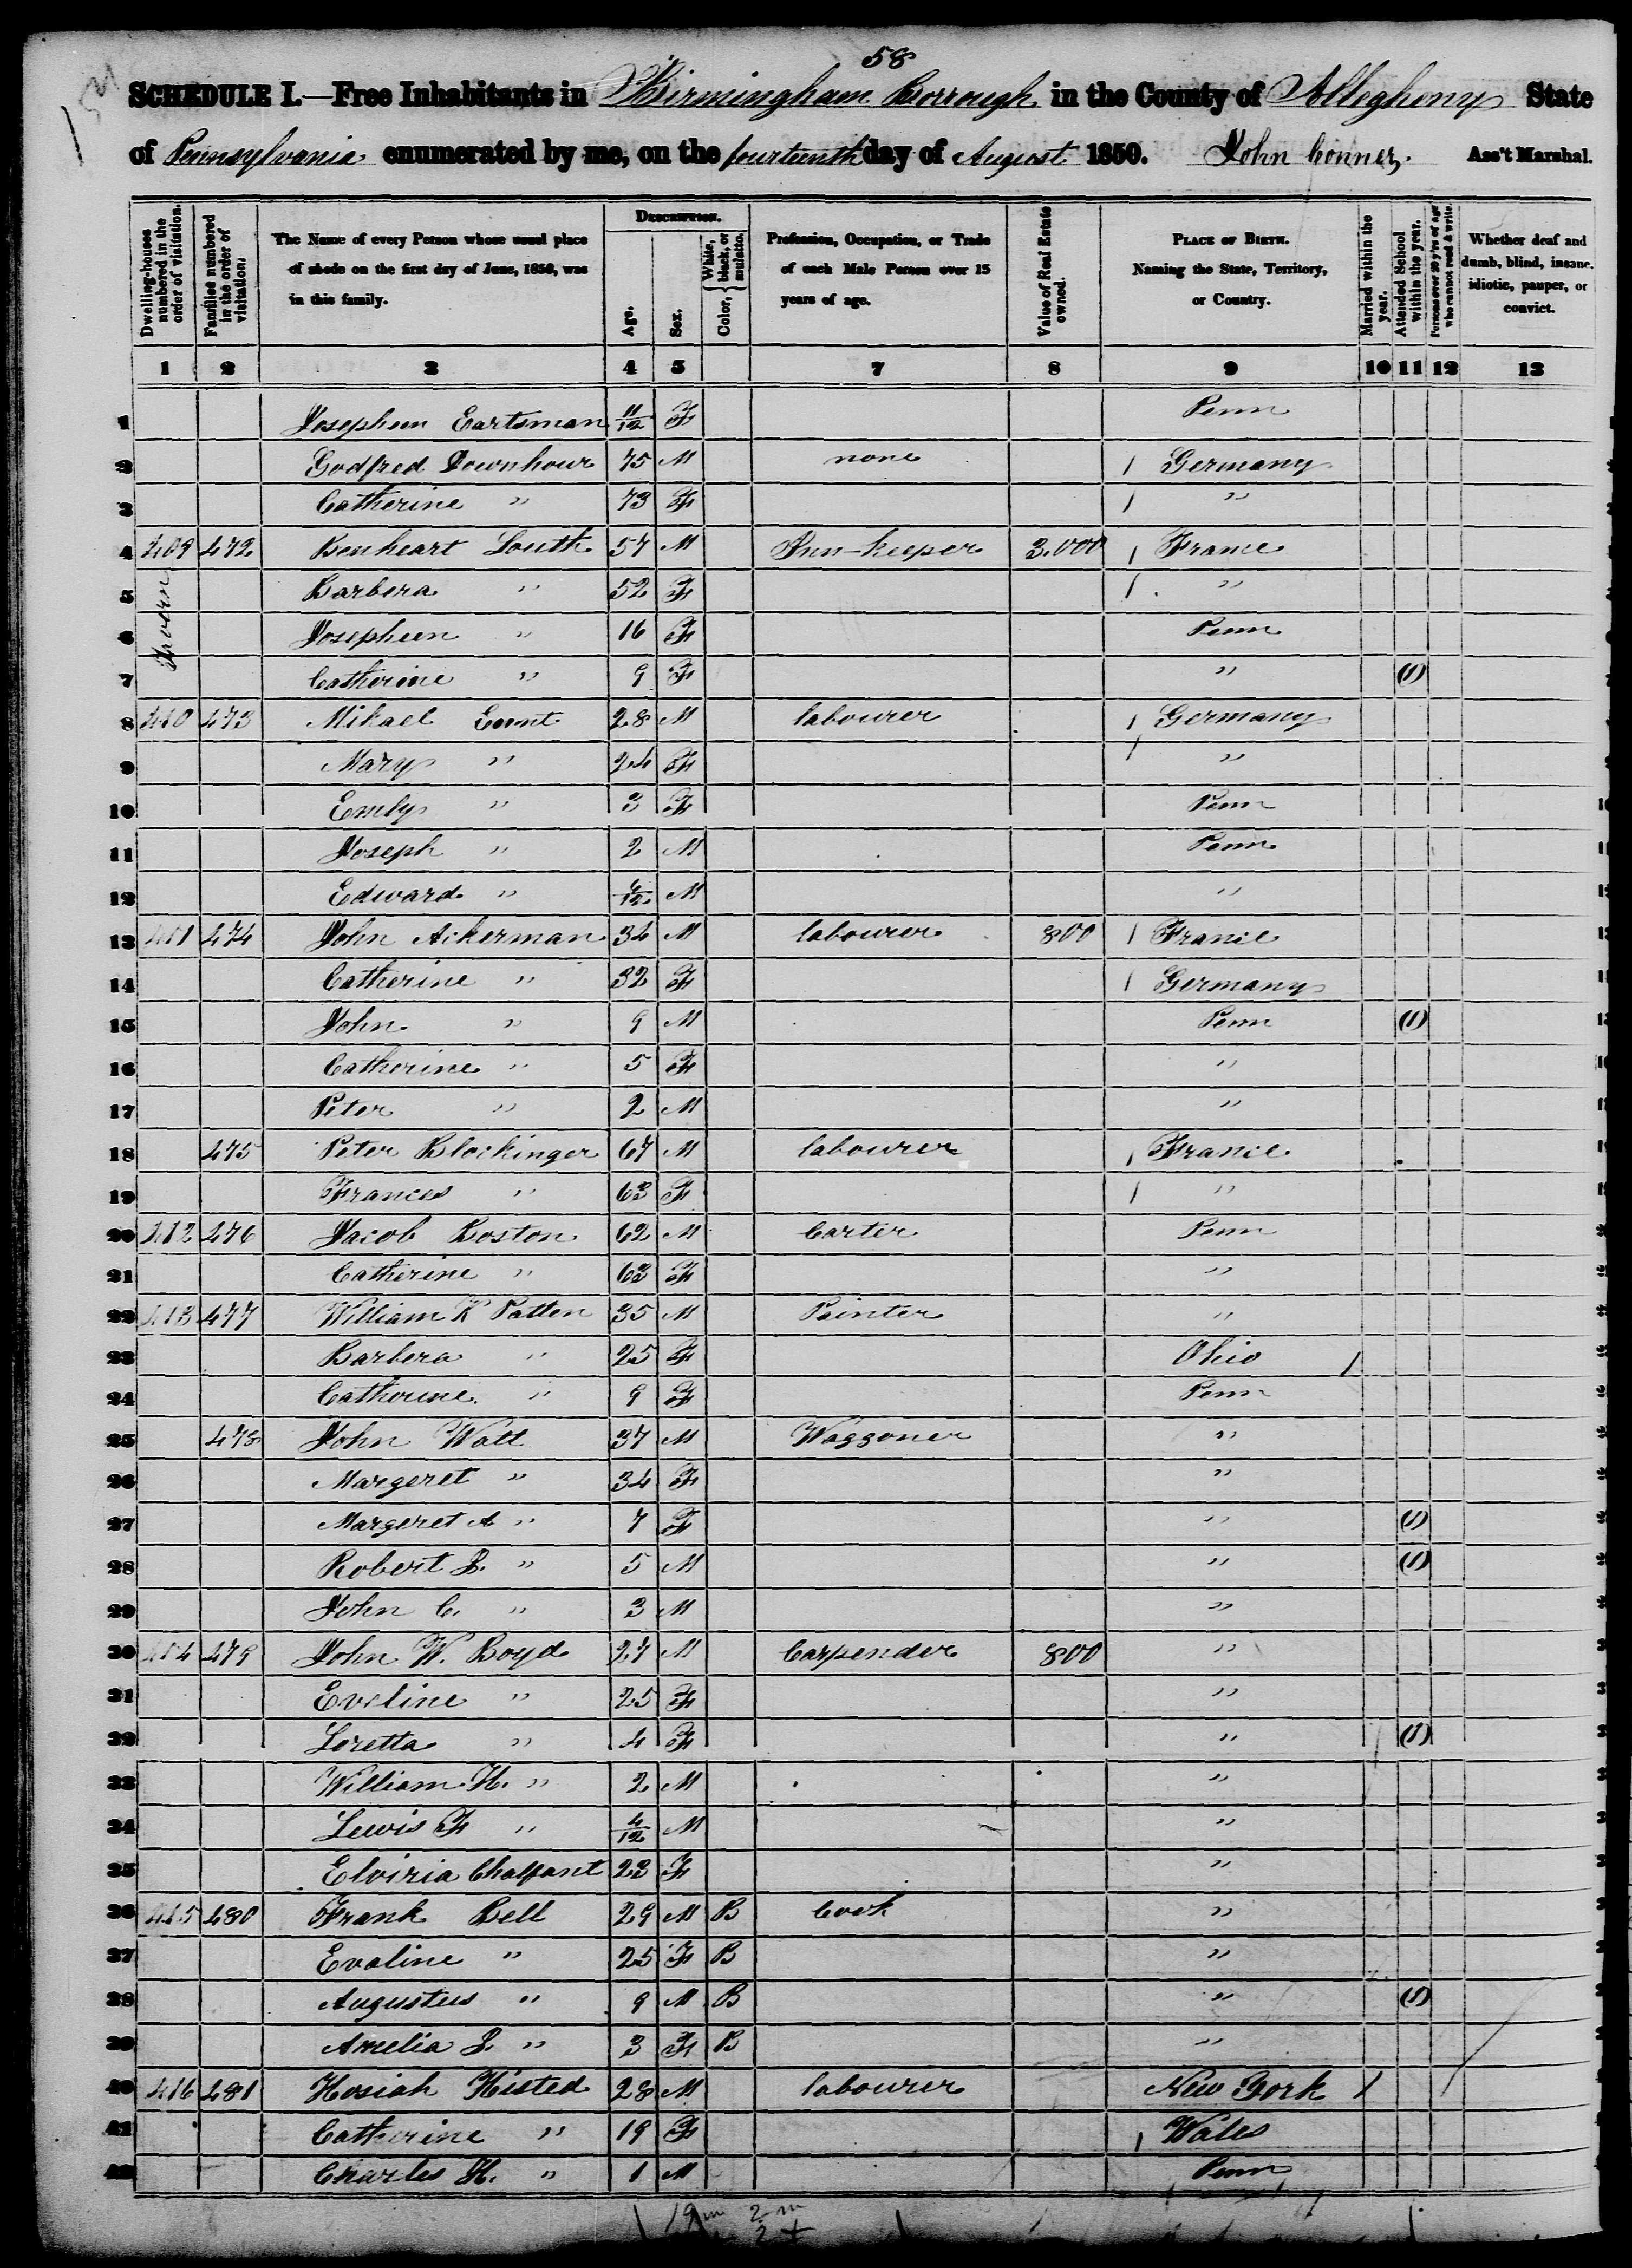 58
SCHEDULE I.—Free Inhabitants in Birmingham Borrough in the County of Allegheny State
of Pennsylvania enumerated by me, on the fourteenth day of August 1850. John Conner, Ass't Marshal.
Dwelling-houses numbered in the order of visitation. Families numbered in the order of visitation. The Name of every Person whose usual place of abode on the first day of June, 1850, was in this family. Description. Age. Sex. Color, White, black, or mulatto. Profession, Occupation, or Trade of each Male Person over 15 years of age. Value of Real Estate owned. Place of Birth. Naming the State, Territory, or Country. Married within the year. Attended School within the year. Persons over 20 y'rs of age who cannot read & write. Whether deaf and dumb, blind, insane, idiotic, pauper, or convict.
1 2 3 4 5 7 8 9 10 11 12 13
1 Josepheen Eartsman 11/12 F Penn
2 Godfred Downhour 75 M none / Germany
3 Catherine " 73 F / "
4 409 472 Benheart Louth 57 M Inn-keeper 3.000 / France
5 Barbera " 52 F / "
6 Josepheen " 16 F Penn
7 Catherine " 9 F " (1)
8 410 473 Mikael 28 M labourer / Germany
9 Mary " 24 F / "
10 Emly " 3 F Penn
11 Joseph " 2 M Penn
12 Edward " M "
13 411 474 John Ackerman 34 M labourer 800 / France
14 Catherine " 32 F / Germany
15 John " 9 M Penn (1)
16 Catherine " 5 F "
17 Peter " 2 M "
18 475 Peter Blockinger 67 M labourer / France
19 Frances " 63 F / "
20 412 476 Jacob Boston 62 M Carter Penn
21 Catherine " 63 F "
22 413 477 William K Patten 35 M Painter "
23 Barbera " 25 F Ohio /
24 Catherine " 9 F Penn
25 478 John Watt 37 M Waggoner "
26 Margeret " 34 F "
27 Margeret A " 7 F " (1)
28 Robert J. " 5 M " (1)
29 John C. " 3 M "
30 414 479 John W. Boyd 27 M Carpender 800 "
31 Eveline " 25 F "
32 Loretta " 4 F " (1)
33 William H. " 2 M "
34 Lewis F " 4/12 M "
35 Elviria Chalfant 23 F "
36 415 480 Frank Bell 29 M B Cook "
37 Evaline " 25 F B "
38 Augustus " 9 M B " (1)
39 Amelia J. " 3 F B "
40 416 481 Hosiah Histed 28 M labourer New York /
41 Catherine " 19 F / Wales
42 Charles H. " 1 M Penn